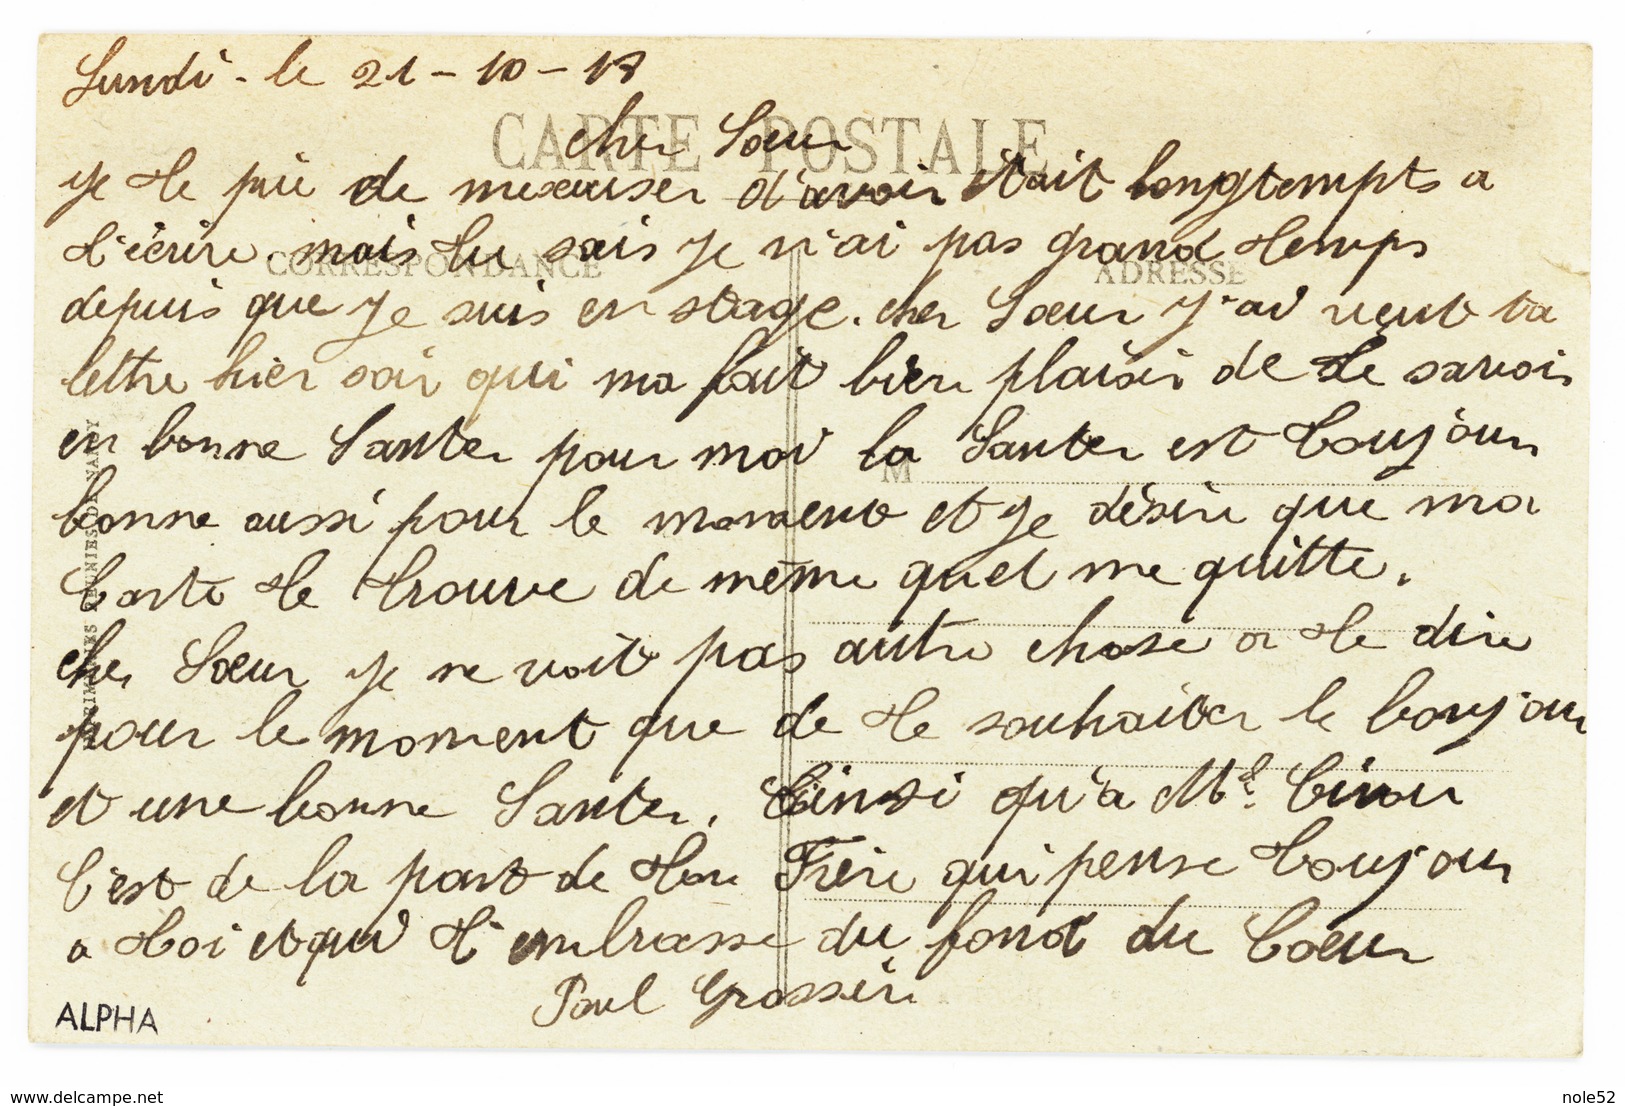 Lundi - le 21 - 10 - 18
CARTE POSTALE
cher Sœur
je te prie de mexcuser d'avoir était longtempts a
t'écrire. mais tu sais je n'ai pas grand temps
CORRESPONDANCE
ADRESSE
depuis que je suis en stage. cher Sœur j'ai reçut ta
lettre hier soir qui ma fait bien plaisir de te savoir
en bonne Santer pour moi la Santer est toujour
M
bonne aussi pour le moment et je désire que ma
Carte te trouve de même quel me quitte.
cher Sœur je ne voit pas autre chose a te dire
pour le moment que de te souhaiter le bonjour
et une bonne Santer. Ainsi qu'a Md.
C'est de la part de ton Frère qui pense toujour
a toi et qui t'embrasse du fond du Cœur
Paul Grossin
IMPRIMERIES REUNIES DE NANCY
ALPHA
www.delcampe.net
nole52